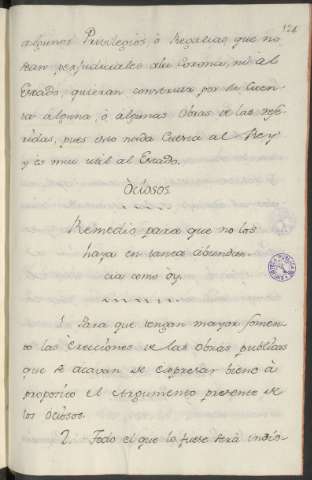 126
algunos Privilegios, ô Regalías, que no
sean perjudiciales âla Corona, ni al
Estado, quieran construir por su cuen-
ta alguna, ô algunas Obras de las refe-
ridas, pues esto nada Cuesta al Rey
y es mui util al Estado.
Ociosos
Remedio para que no los
haya en tanta abundan-
cia como ôy.
1. Para que tengan mayor fomen-
to las Erecciones de las Obras publicas
que se acavan de expresar biene â
proposito el Argumento presente de
los Ociosos.
2. Todo el que lo fuese será indis-